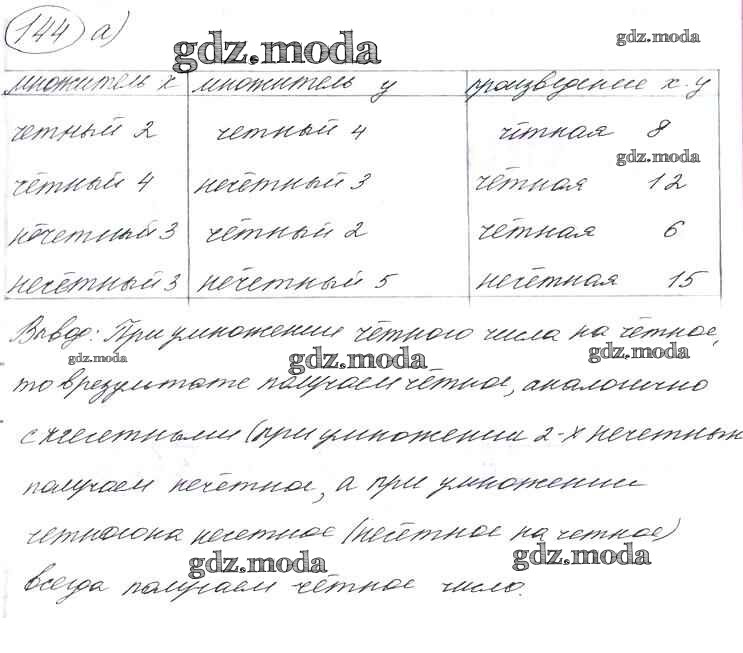 144 а)
gdz.moda
gdz.moda
множитель х множитель у произведение х·у
четный 2 четный 4 чётная 8
gdz.moda
чётный 4 нечётный 3 чётная 12
нечетный 3 чётный 2 чётная 6
нечётный 3 нечетный 5 нечётная 15
Вывод: При умножении чётного числа на чётное,
gdz.moda gdz.moda gdz.moda
то в результате получаем чётное, аналогично
с нечетными (при умножении 2-х нечетных
получаем нечётное, а при умножении
четного на нечетное (нечётное на четное)
gdz.moda gdz.moda
всегда получаем чётное число.